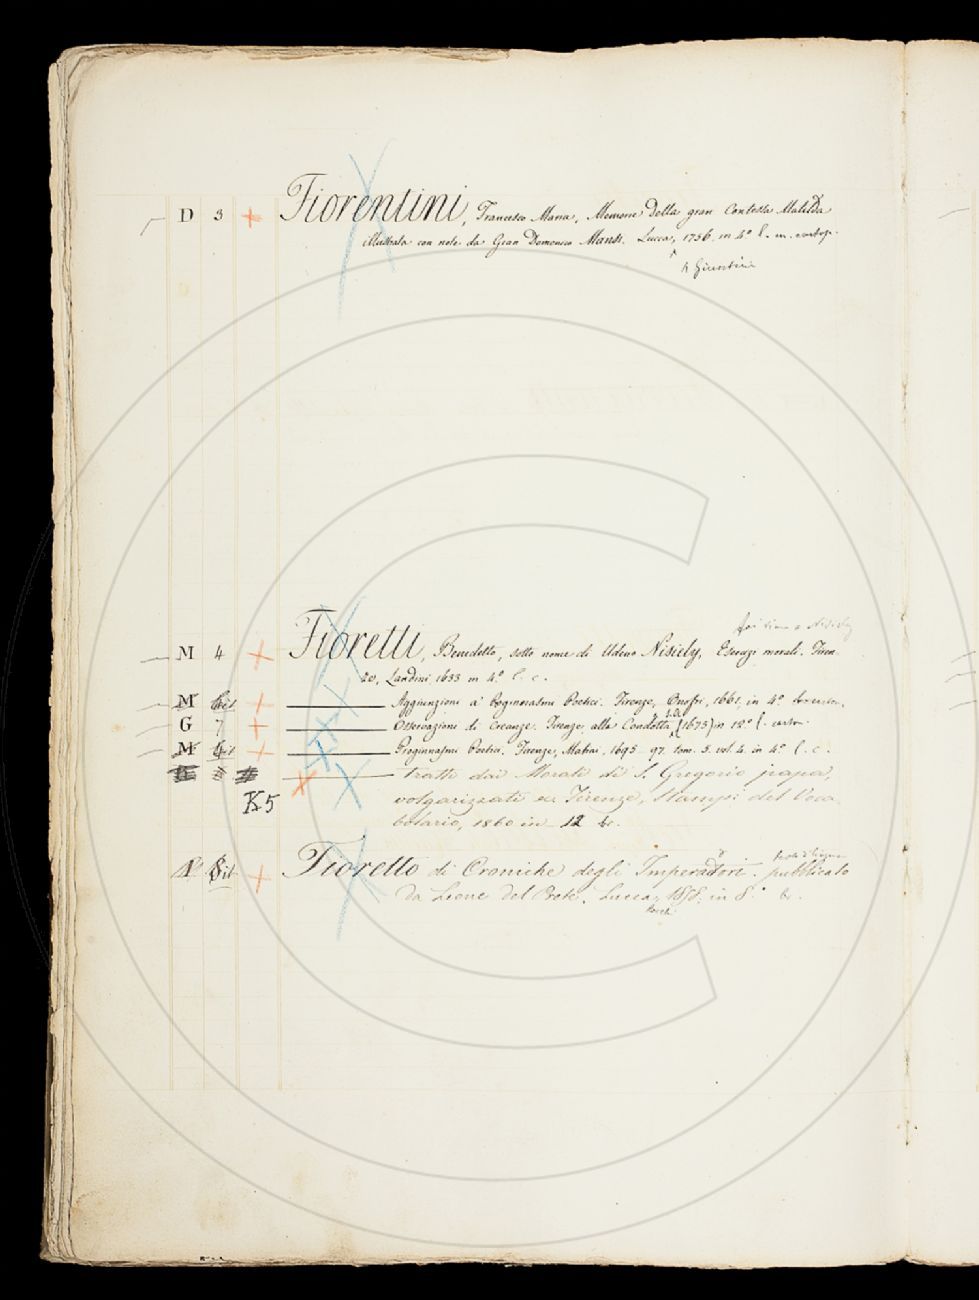 D 3 Fiorentini, Francesco Maria, Memorie della gran Contessa Matilda
illustrata con note da Gian Domenico Mansi. Lucca, 1756. in 4.º l. m. cartop.
p Giuntini
M 4 Fioretti, Benedetto, sotto nome di Udeno Nisiely, Esercizi morali. Firen-
ze, Landini, 1633 in 4.º l. c.
M Aggiunzioni a' Proginnasmi Poetici. Firenze, Onofri, 1661. in 4.º
G 7 Osservazioni di Creanze. Firenze, alla Condotta, (1675) in 12.º l. carton.
M 4 Proginnasmi Poetici. Firenze, Matini, 1695. 97. tom. 5. vol. 4. in 4.º l. c.
K5 tratti dai Morali di S. Gregorio papa,
volgarizzati ec. Firenze, Stamp. del Voca-
bolario, 1860 in 12 br.
Fioretto di Croniche degli Imperadori. pubblicato
da Leone del Prete. Lucca, 1858. in 8.º br.